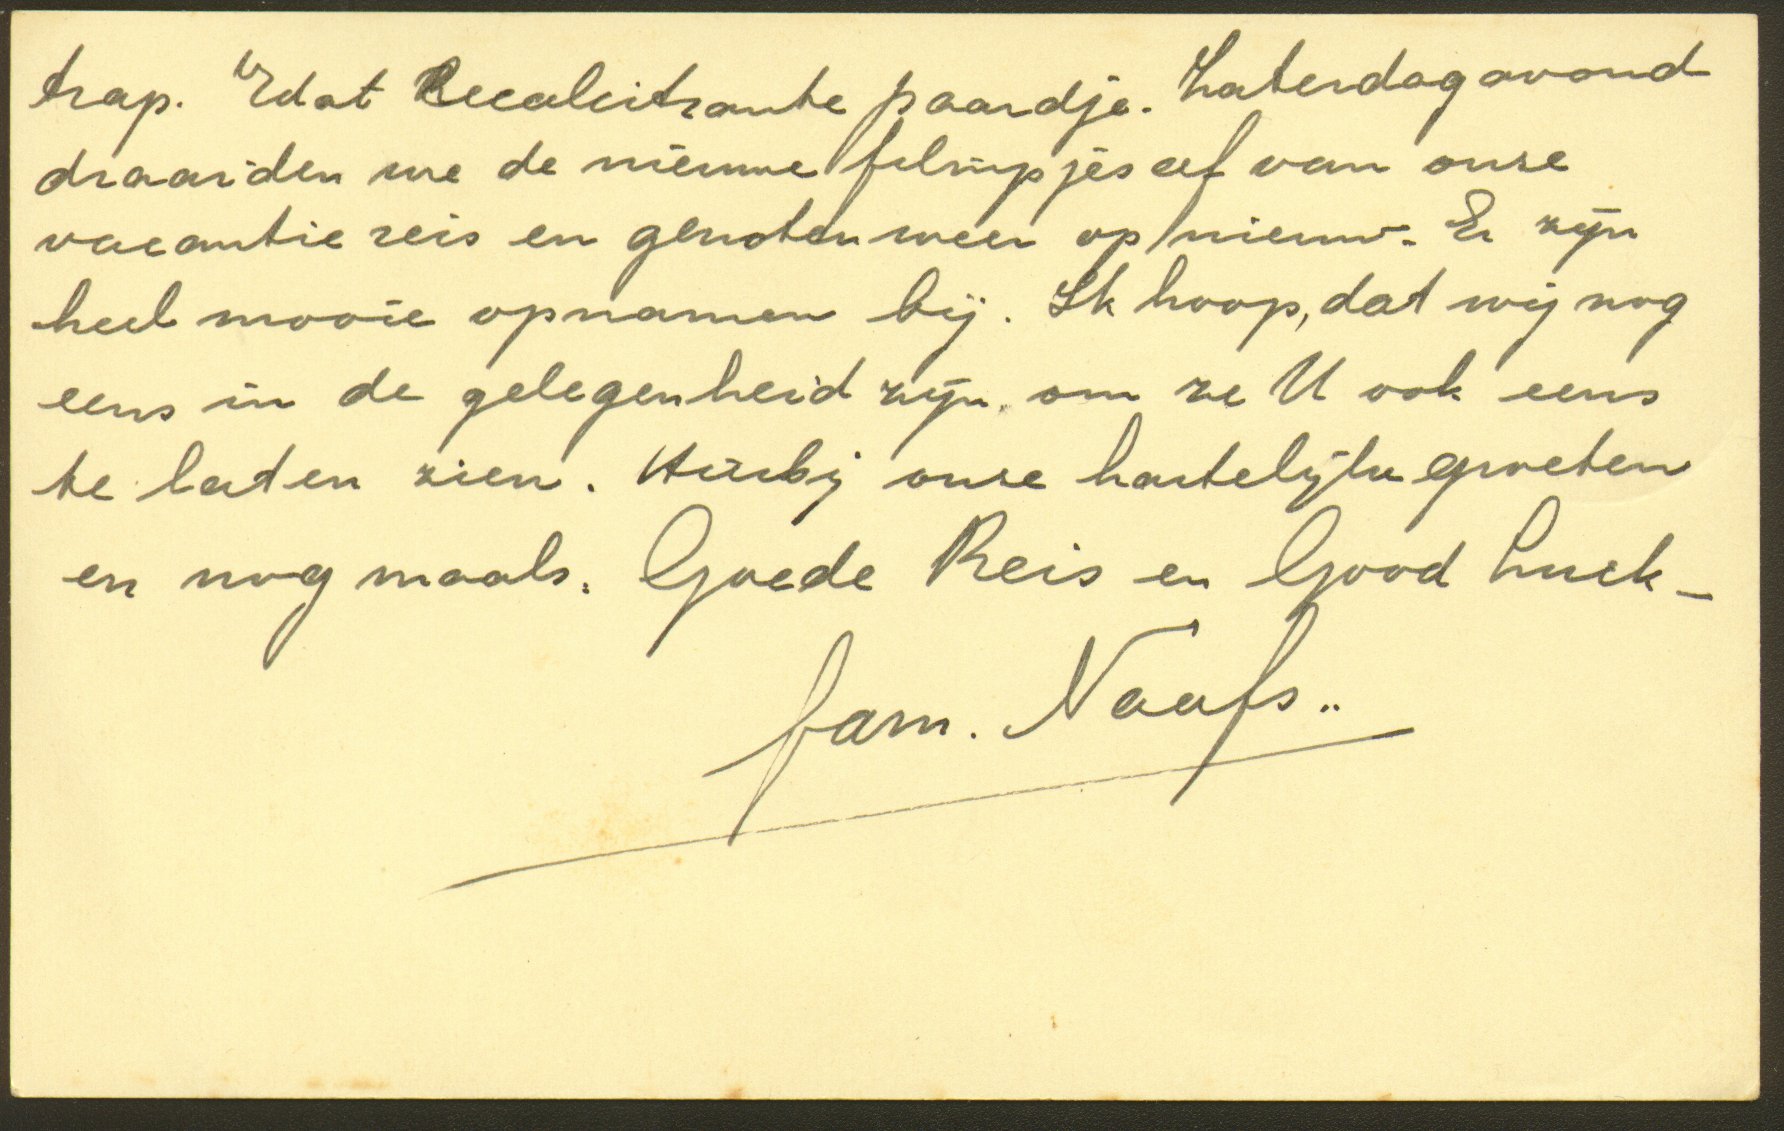 trap. Edat Recalcitrante paardje. Zaterdagavond
draaiden we de nieuwe filmpjes af van onze
vacantiereis en genoten weer op nieuw. Er zijn
heel mooie opnamen bij. Ik hoop, dat wij nog
eens in de gelegenheid zijn om ze U ook eens
te laten zien. Hierbij onze hartelijke groeten
en nogmaals: Goede Reis en Good Luck -
fam. Naafs..